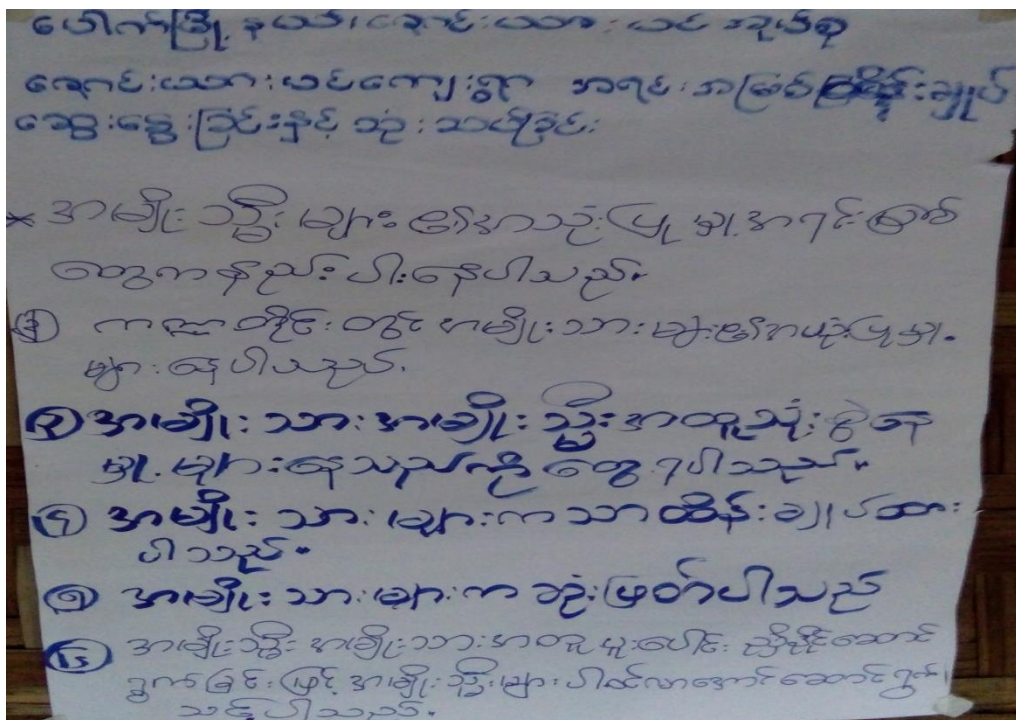 ပေါက်မြို့နယ်၊ ချောင်းယား ယင် အုပ်စု
ချောင်းယားယင်ကျေးရွာ အရင်းအမြစ် ထိန်းချုပ်
ဆွေးနွေးခြင်းနှင့် သုံးသပ်ခြင်း
* အမျိုးသ္မီးများ၏အသုံးပြုမှု အရင်းမြစ်
တွေကနည်းပါးနေပါသည်။
ကဏ္ဍတိုင်းတွင် အမျိုးသားများ၏အသုံးပြုမှု
များနေပါသည်။
၃ အမျိုးသားအမျိုးသ္မီးအတူသုံးစွဲနေ
မှုများနေသည်ကိုတွေ့ရပါသည်။
၄ အမျိုးသားများကသာထိန်းချုပ်ထား
ပါသည်။
၅ အမျိုးသားများကဆုံးဖြတ်ပါသည်
၆ အမျိုးသ္မီးအမျိုးသားအတူပူးပေါင်းညှိနှိုင်းဆောင်
ရွက်ခြင်းဖြင့်အမျိုးသ္မီးများပါဝင်လာအောင်ဆောင်ရွက်
သင့်ပါသည်။